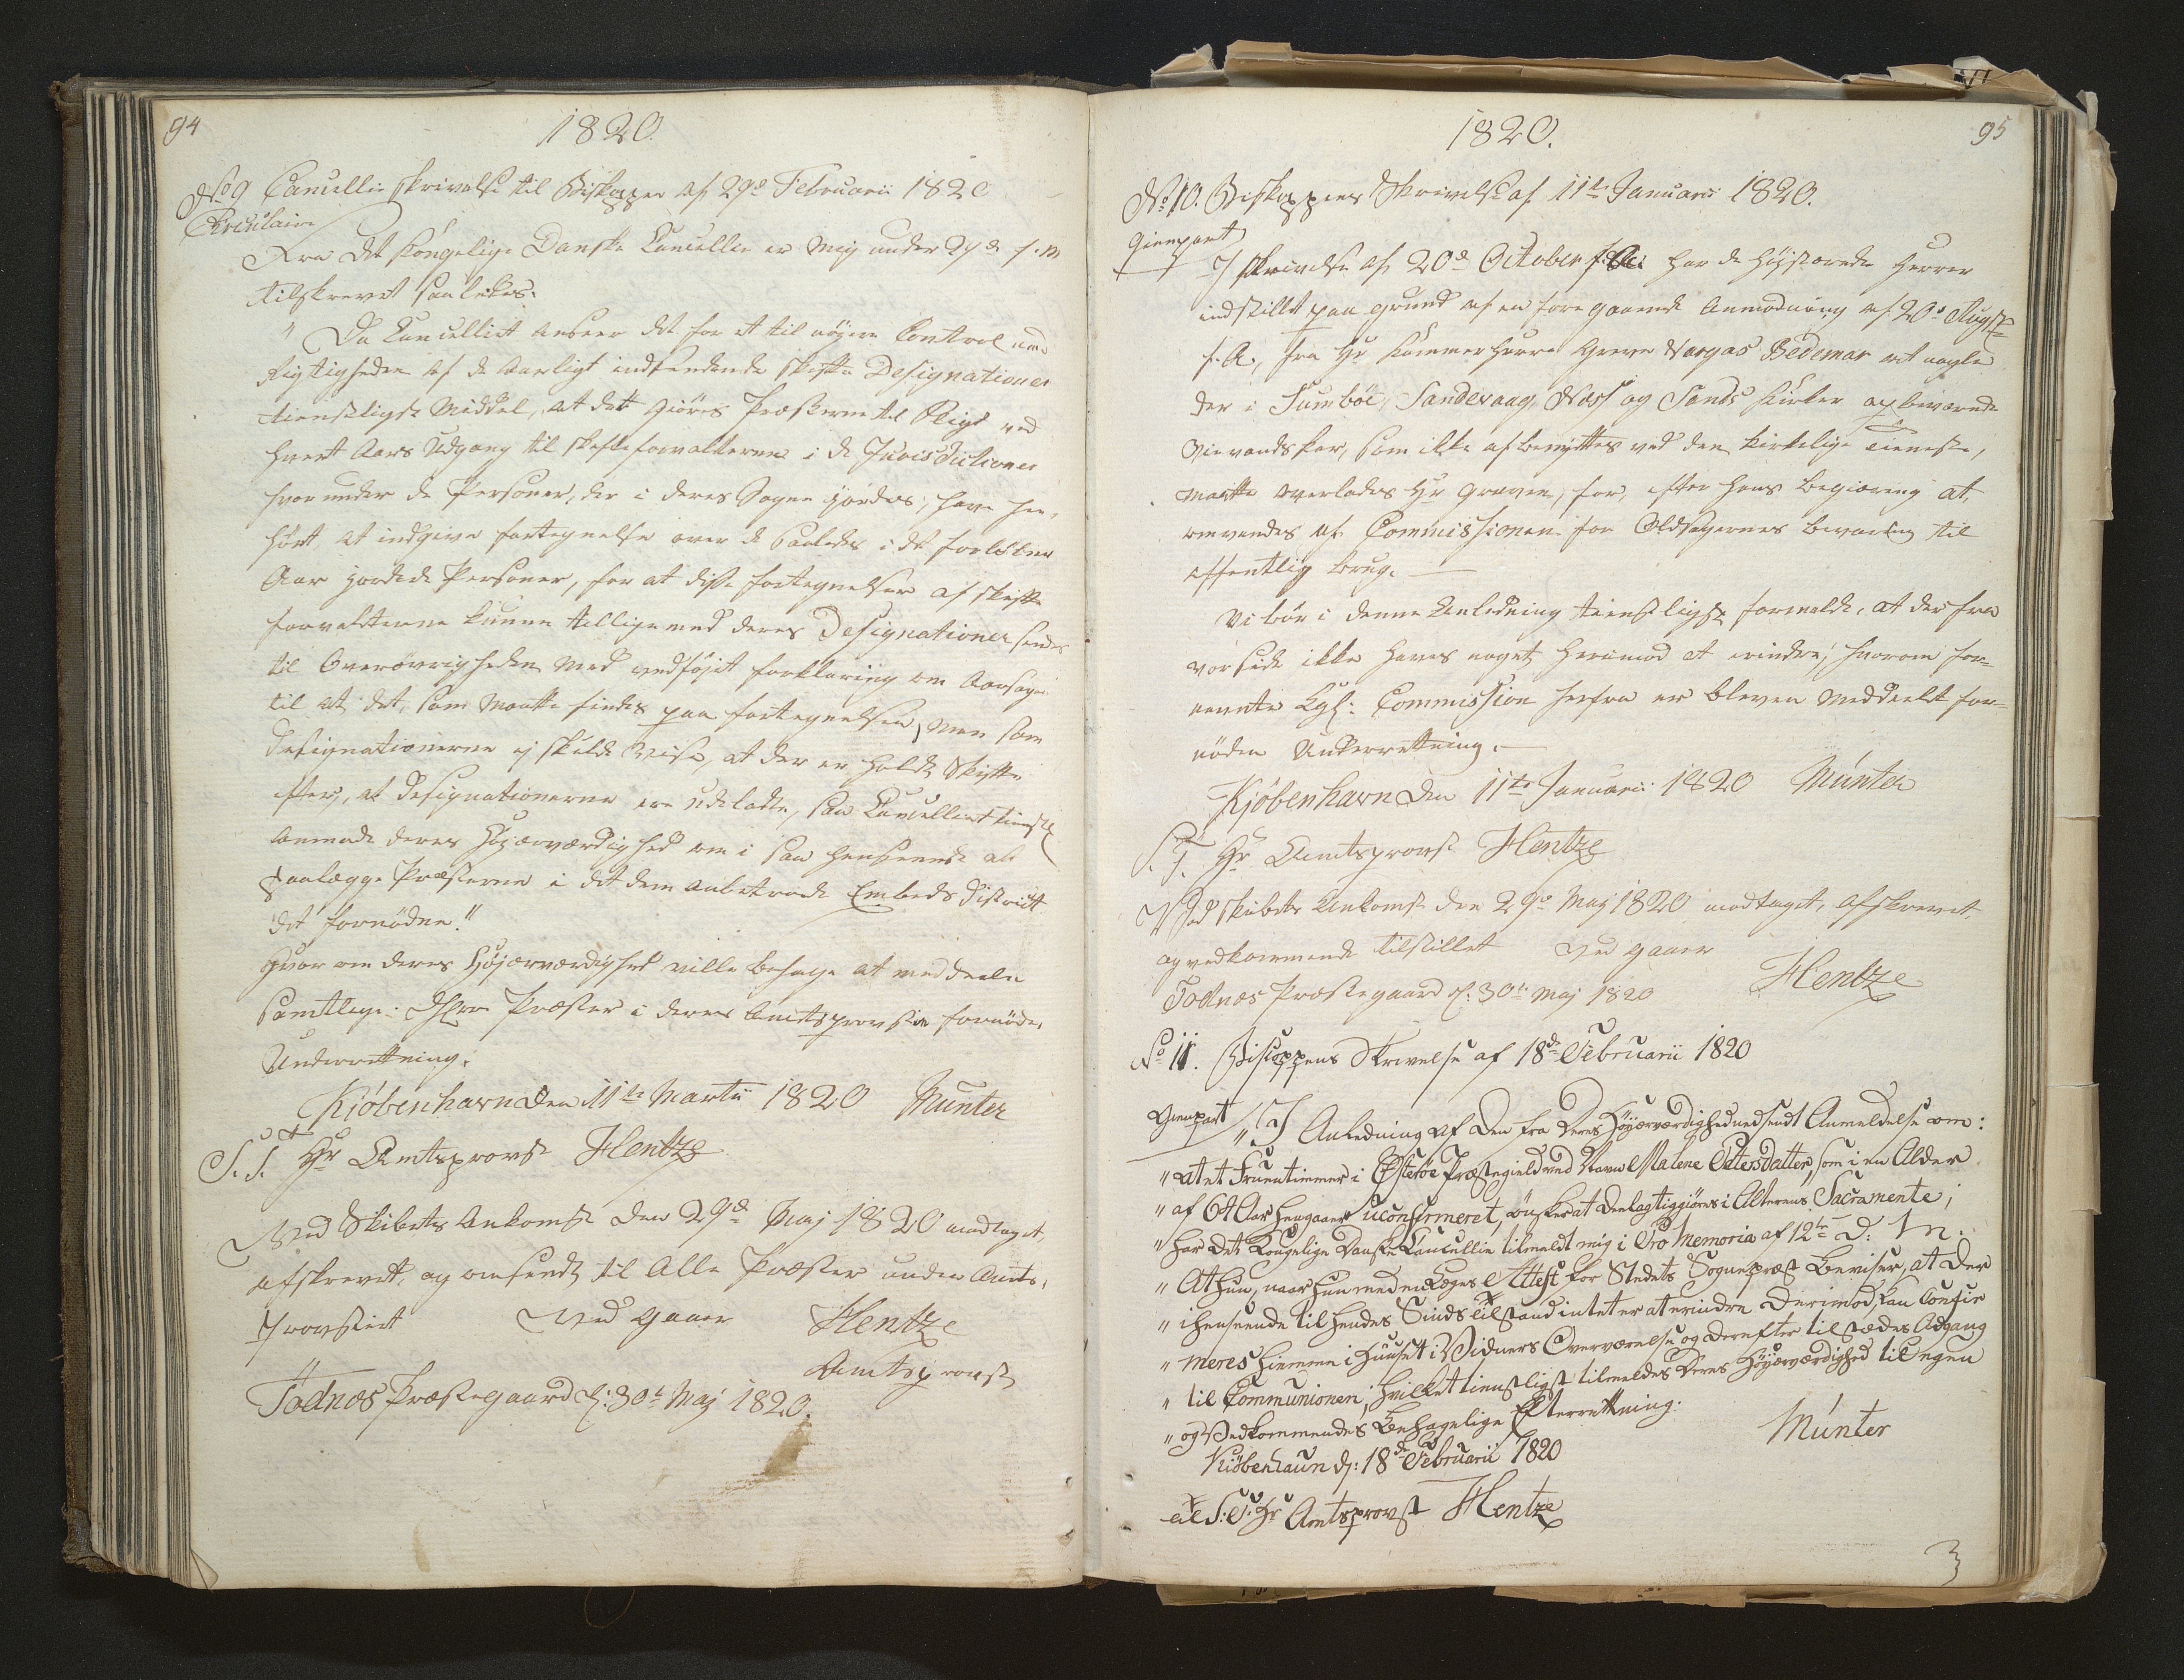 94
1820.
No 9 Cancellie skrivelse til Biskoppen af 29de Februarii 1820
Circulaire
Fra det Kongelige Danske Cancellie er mig under 29de f. M
tilskrevet saaledes:
" Da Cancelliet anseer det for et til nøiere Control med
Rigtigheden af de aarligt indsendende Skifte Designationer
tienstligt Middel, at det giöres Præsterne til Pligt ved
hvert Aars Udgang til Skifteforvalterne i de Jurisdictioner
hvorunder de Personer, der i deres Sogne jordes, have hen-
hört, at indgive fortegnelse over de saaledes i det forløbne
Aar jordede Personer, for at disse fortegnelser af Skifte
forvalterne kunne tilligemed deres Designationer sendes
til Overøvrigheden med vedføjet forklaring om Aarsagen
til at det, som maatte findes paa fortegnelsen, men som
Designationerne ej skulde vise, at der er holdt Skifte
efter, at Designationerne ere udeladte, saa Cancelliet tienstl
anmode deres Højærværdighed om i saa henseende at
paalægge Præsterne i det dem anbetroede Embeds District
det fornødne."
Hvorom deres Højærværdighed ville behage at meddeele
samtlige Hrr Præster i deres Amtsprovstie fornøden
Underretning.
Kiöbenhavn den 11te Martii 1820 Münter
S. T. Hr Amtsprovst Hentze
Ved Skibets Ankomst den 29de Maj 1820 modtaget,
afskrevet, og omsendt til Alle Præster under Amts-
Provstiet Ved gaaer Hentze
Amtsprovst
Todnæs Præstegaard d: 30te Maj 1820.
95
1820.
No 10. Biskoppens Skrivelse af 11te Januarii 1820.
Gienpart
I skrivelse af 20de October f: A: har de høistærede Herrer
indstillet paa grund af en foregaaende Anmodning af 20de Augst
f. A., fra Hr. Kammerherre Greve Vargas Bedemar at nogle
der i Sumböe, Sandevaag, Næss og Sands Kirker opbevarede
Vievandskar, som ikke afbenyttes ved den kirkelige Tieneste,
maatte overlades Hr Greven, for, efter hans begiæring at,
anvendes af Commissionen for Oldsagernes bevaring til
offentlig brug.
Vi bör i denne Anledning tienstligst formelde, at der fra
vor side ikke haves noget herimod at erindre, hvorom for-
nævnte Kgl: Commission herfra er bleven meddeelt for-
nöden Underretning.
Kjöbenhavn den 11te Januarii 1820 Münter
S. T. Hr Amtsprovst Hentze
Ved Skibets Ankomst den 29de Maj 1820 modtaget, afskrevet,
og vedkommende tilstillet Ved gaaer
Hentze
Todnæs Præstegaard d: 30te Maj 1820
No 11. Biskoppens Skrivelse af 18de Februarii 1820
Gienpart
"I Anledning af den fra Deres Höyærværdighed nedsendt Anmeldelse om:
" at et Fruentimmer i Österöe Præstegield ved Navn Malene Petersdatter, som i en Alder
" af 64 Aar hengaaer uconfirmeret, önsker at deelagtiggiöres i Alterens Sacramente;
" har det Kongelige Danske Cancellie tilmeldt mig i Pro Memoria af 12te d: M:
" At hun, naar hun med en Læges Attest for Stedets Sognepræst beviser, at der
" i henseende til hendes Sindstilstand intet er at erindre derimod, kan Confir
" meres hiemme i Huuset i Vidners Overværelse og derefter tilstædes Adgang
" til Communionen; hvilket tienstligst tilmeldes Deres Höyærværdighed til egen
" og Vedkommendes behagelige Efterretning.
Kiöbenhavn d: 18de Februarii 1820 Münter
til S: T: Hr Amtsprovst Hentze